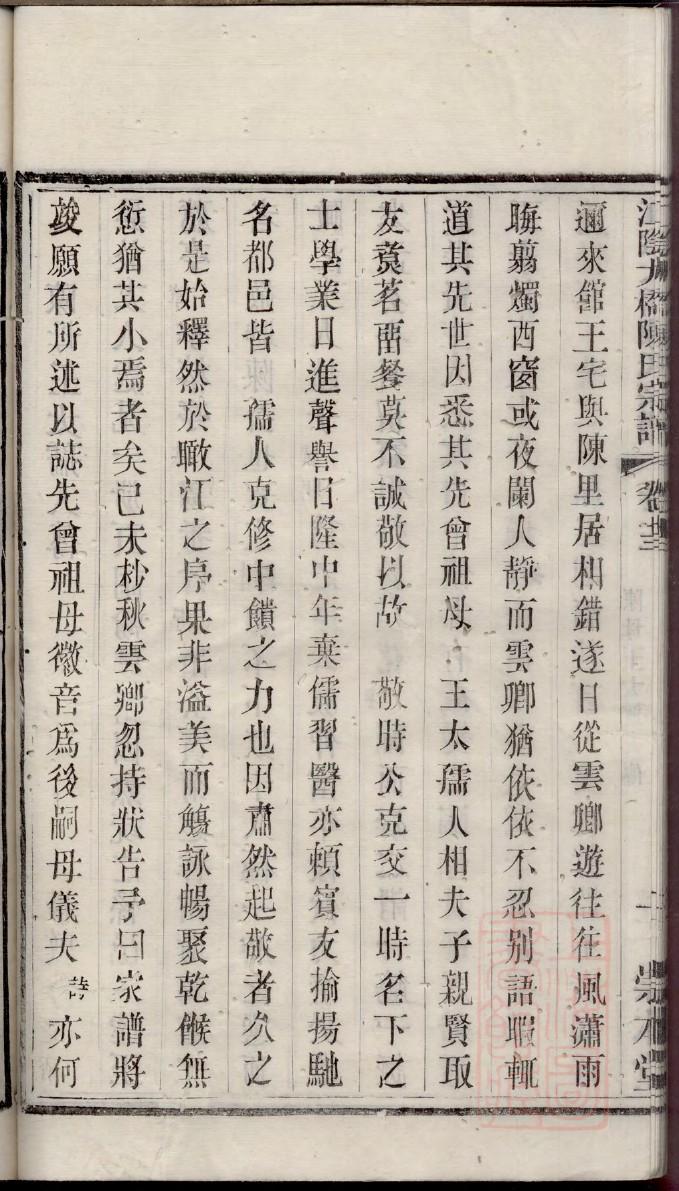 江陰九橋陳氏宗譜 卷廿三 崇本堂
邇來館王宅與陳里居相錯遂日從雲卿遊往往風瀟雨
晦翦燭西窗或夜闌人靜而雲卿猶依依不忍別語暇輒
道其先世因悉其先曾祖母 王太孺人相夫子親賢取
友煑茗畱餐莫不誠敬以故 敬時公克交一時名下之
士學業日進聲譽日隆中年棄儒習醫亦頼賓友揄揚馳
名都邑皆 孺人克修中饋之力也因肅然起敬者久之
於是始釋然於瞰江之序果非溢美而觴詠暢聚乾餱無
愆猶其小焉者矣己未杪秋雲卿忽持狀告予曰家譜將
竣願有所述以誌先曾祖母徽音爲後嗣母儀夫 亦何